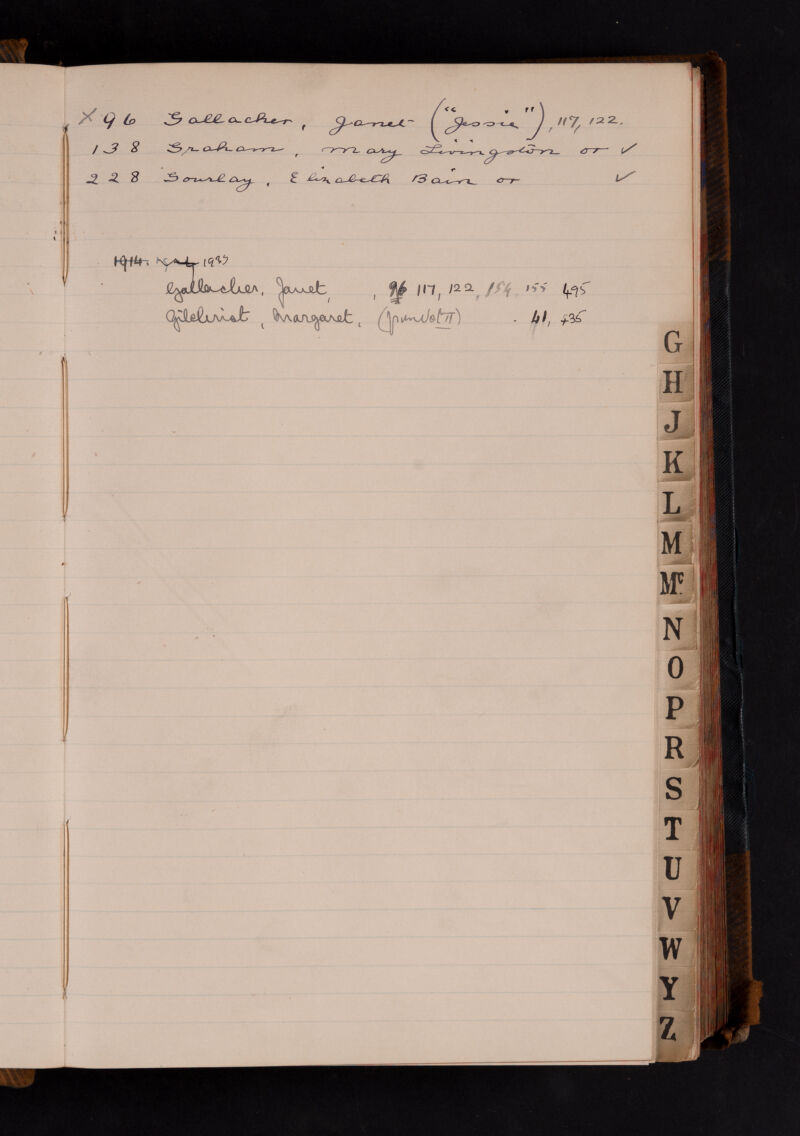 X 96 Gallacher, Janet ("Jessie"), 117, 122.
138 Graham, Mary Livingston or ✓
228 Gourlay, Elizabeth Bain or ✓
1914. 1933
Gallacher, Janet, , 96 117, 122, 154, 155 495
Gilchrist, Margaret, (from Vol II) . 41, 435
G
H
J
K
L
M
Mc
N
O
P
R
S
T
U
V
W
Y
Z